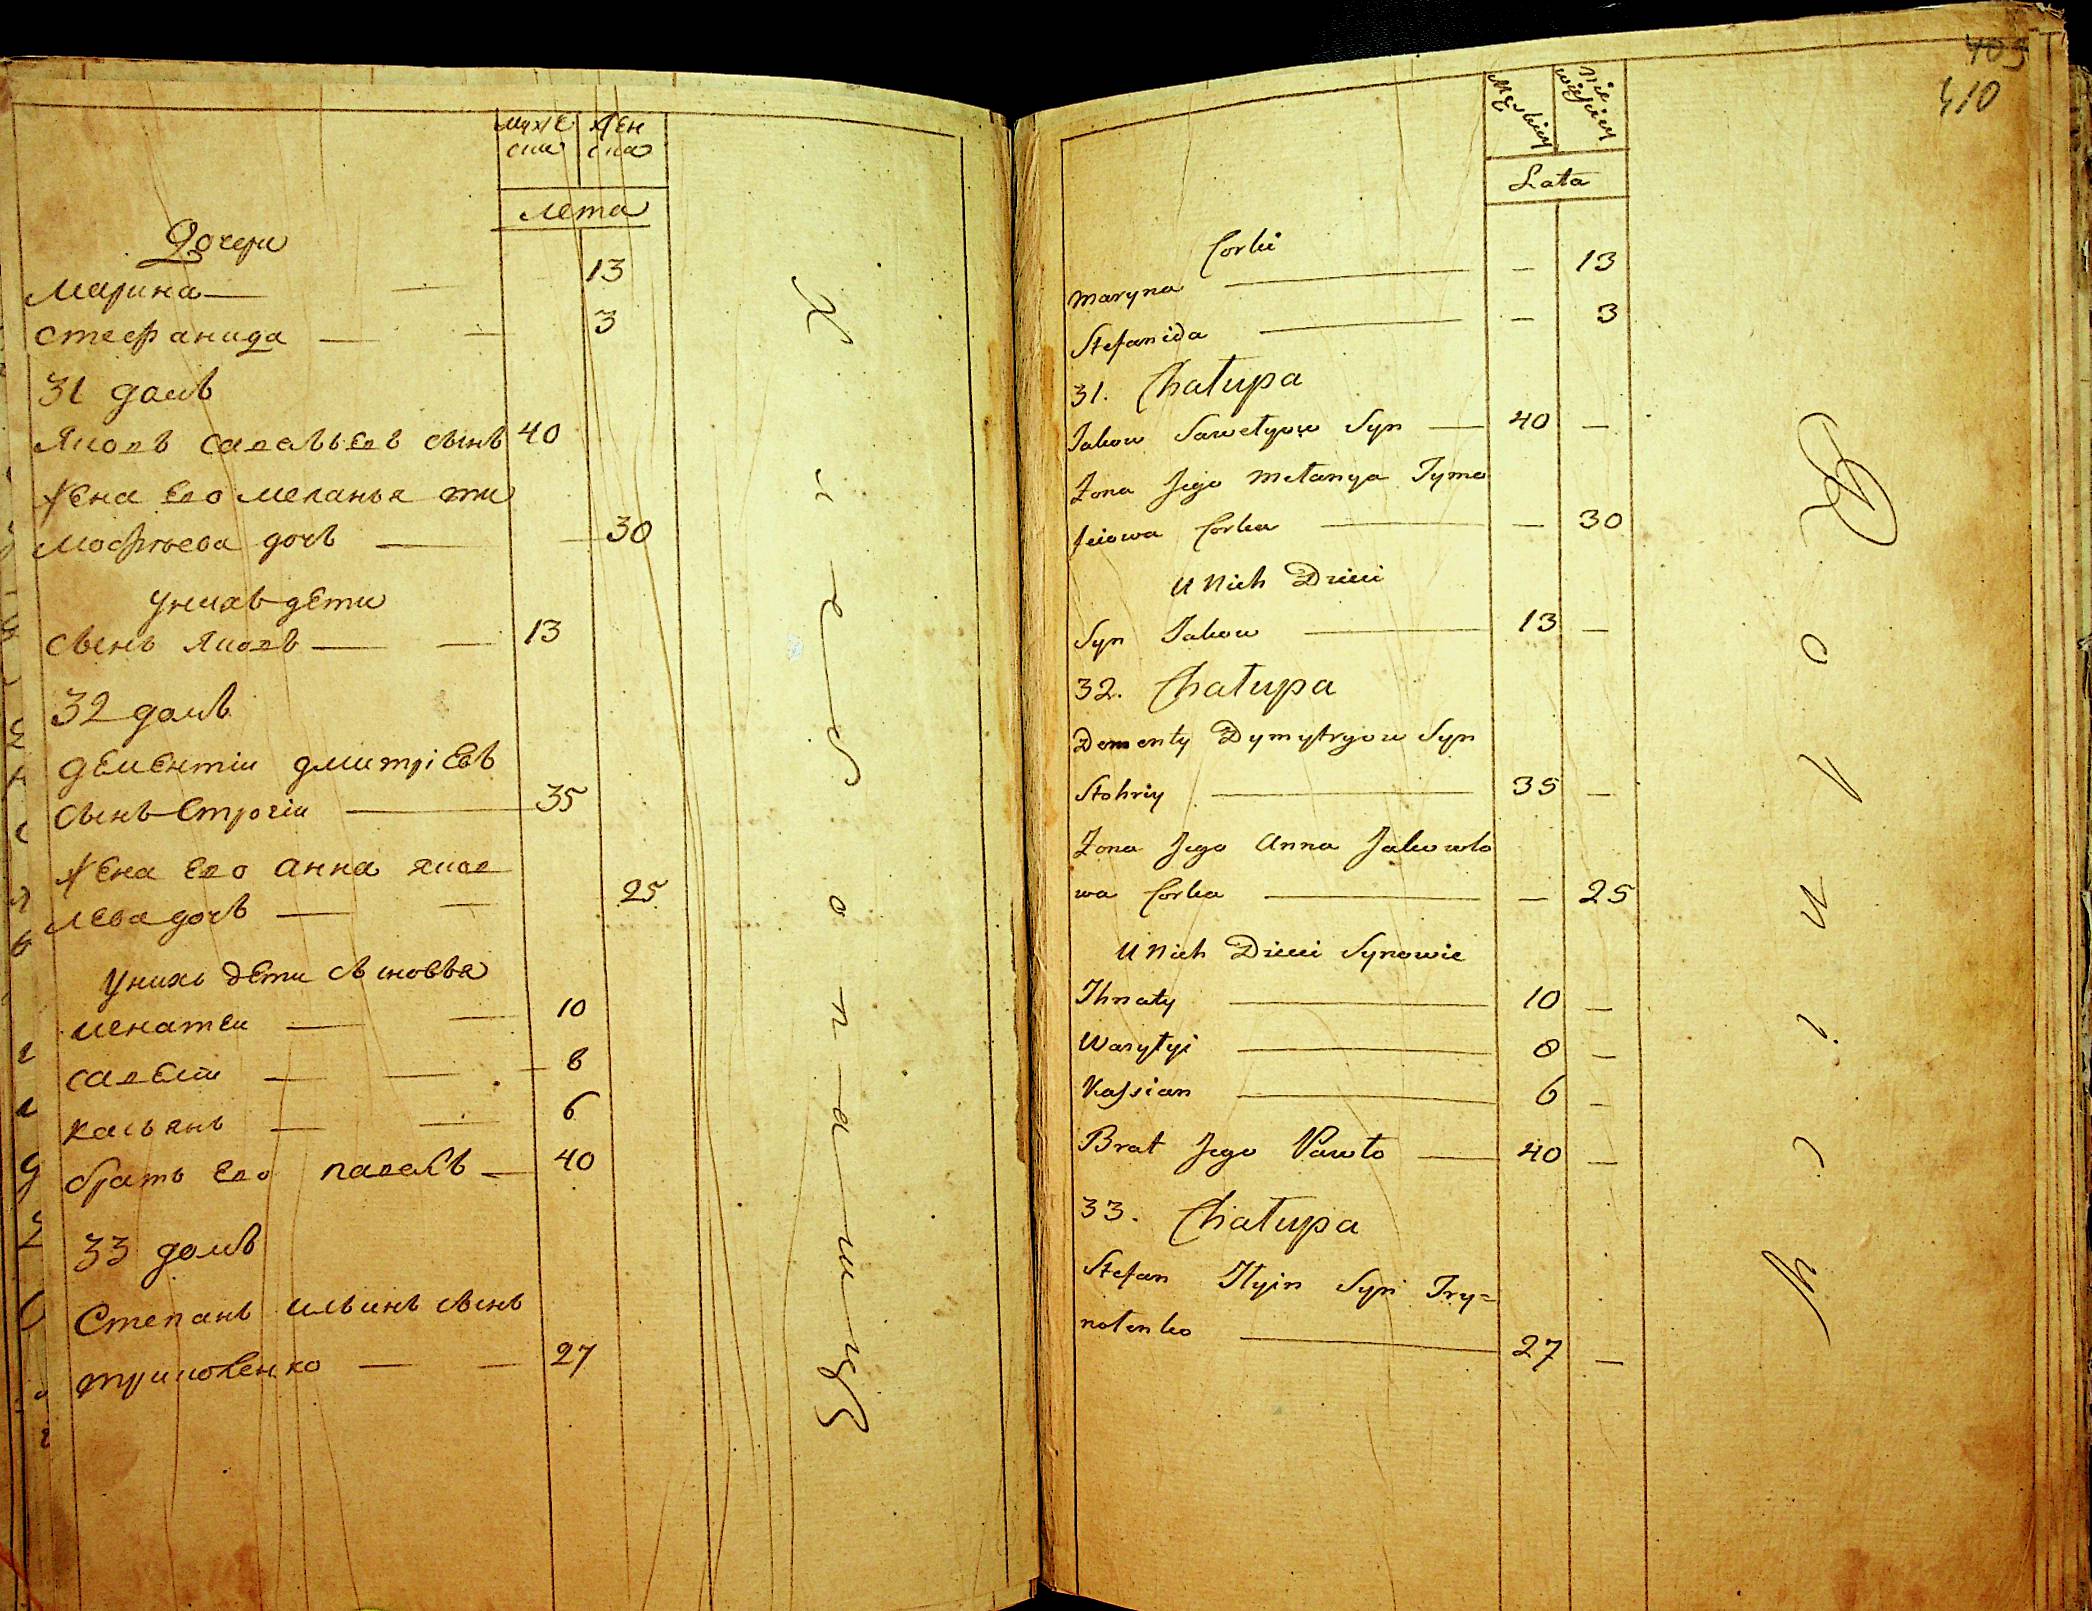 муже
ска
жен
ска
лета
Дочери
Марина — — 13
стефанида — — 3
31 домъ
Яковъ савельевъ сынъ 40
жена его меланья ти
мофѣева дочь — — 30
у нихъ дети
сынъ Яковъ — — 13
32 домъ
дементіи дмитріевъ
сынъ Строгіи — 35
жена его анна яков
лева дочь — — 25
у нихъ дети сыновья
игнатеи — — 10
савелии — — 8
касьянъ — — 6
братъ его павелъ — 40
33 домъ
Степанъ ильинъ сынъ
триполенко — — 27
Хлебопашцъ
405
410
Męskiey
Niewieściey
Lata
Corki
Maryna — — 13
Stefanida — — 3
31. Chałupa
Jakow Sawełyow Syn — 40 —
Zona Jego Mełanya Tymo
feiowa Corka — — 30
U Nich Dzieci
Syn Jakow — 13 —
32. Chałupa
Dementy Dymytryow Syn
Stohriy — 35 —
Zona Jego Anna Jakowło
wa Corka — — 25
U Nich Dzieci Synowie
Ihnaty — 10 —
8 —
Kassian — 6 —
Brat Jego Pawło — 40 —
33. Chałupa
Stefan Iłyin Syn Try=
27 —
Rolnicy